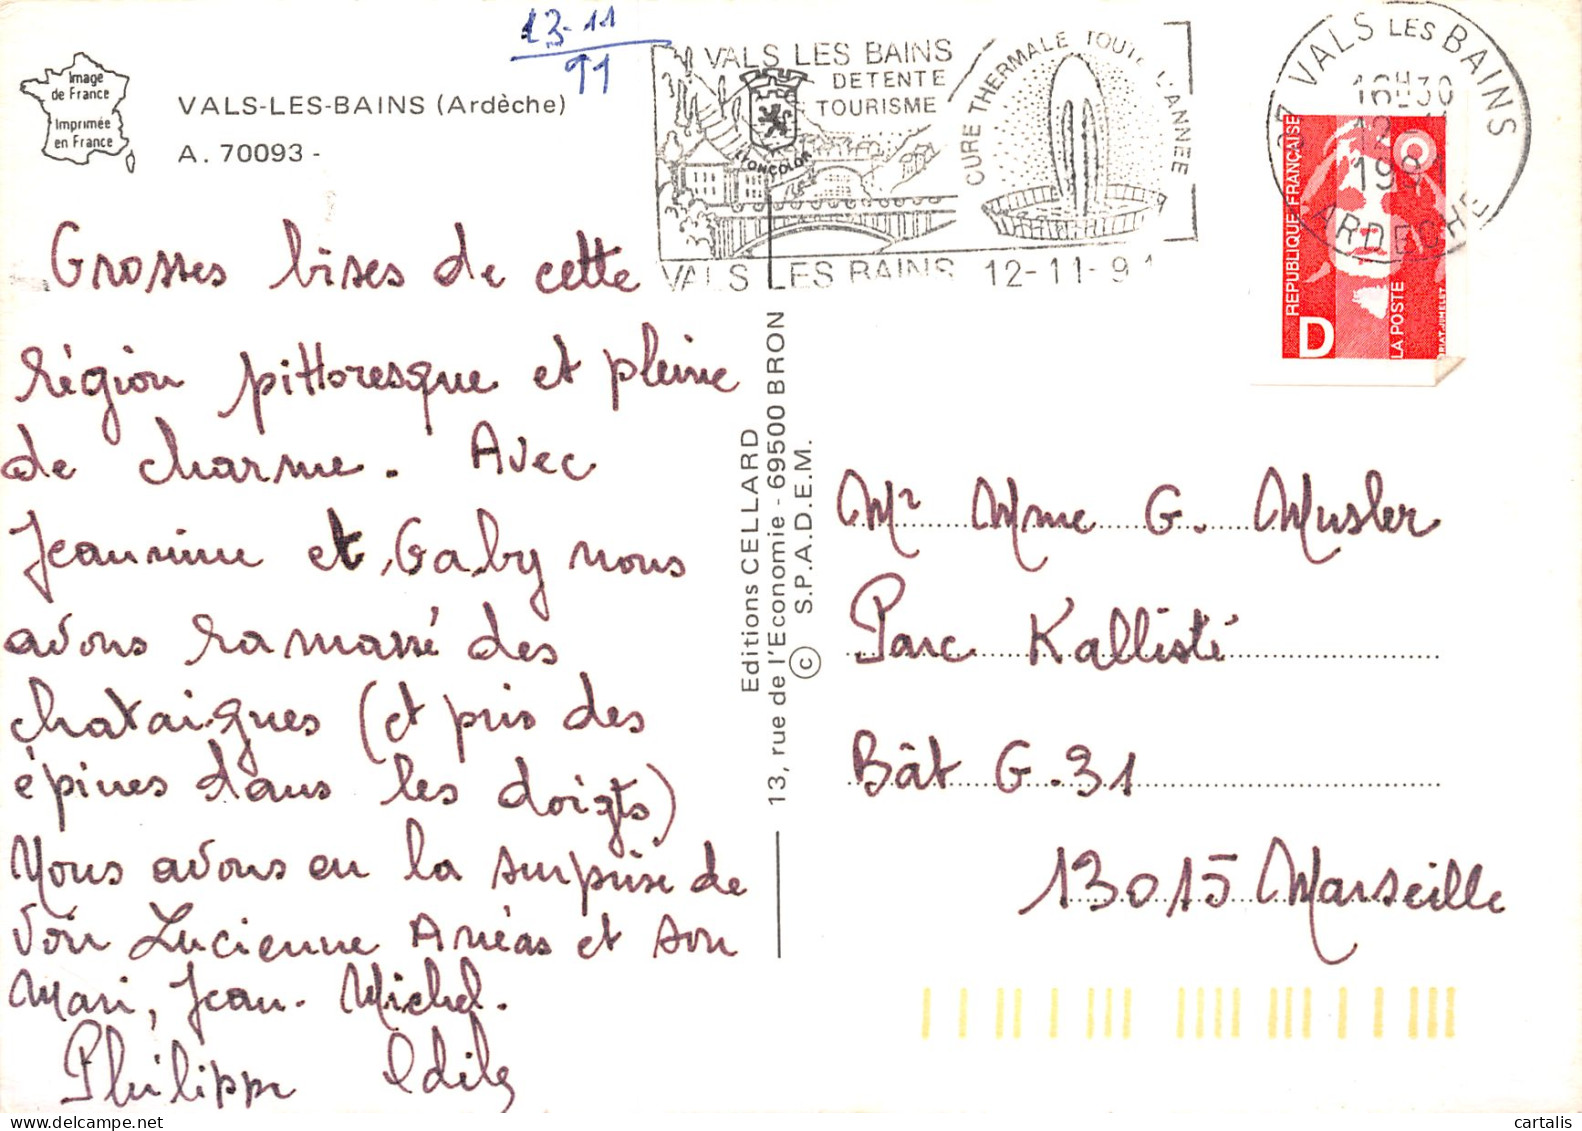 13-11
91
Image
de France
Imprimée
en France
VALS-LES-BAINS (Ardèche)
A. 70093 -
VALS LES BAINS
DETENTE
TOURISME
CURE THERMALE TOUTE L'ANNEE
LYONCOLOR
VALS LES BAINS 12-11-91
07 VALS LES BAINS
16H30
12-
199
ARDECHE
RÉPUBLIQUE FRANÇAISE
D
LA POSTE
Grosses bises de cette
région pittoresque et pleine
de charme. Avec
Jeannine et Gaby nous
avons ramassé des
chataignes (et pris des
épines dans les doigts)
Nous avons eu la surprise de
voir Lucienne Anéas et son
Mari, Jean-Michel.
Philippe Odile
Editions CELLARD
13, rue de l'Economie - 69500 BRON
© S.P.A.D.E.M.
Mr Mme G. Musler
Parc Kallisté
Bât G.31
13015 Marseille
cartalis